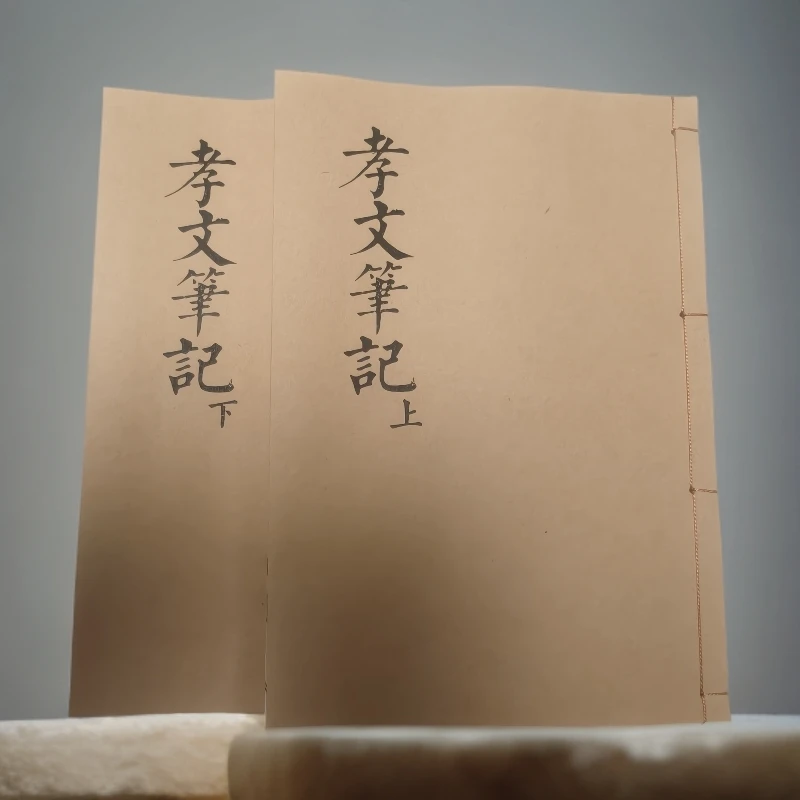 孝文筆記
上
孝文筆記
下